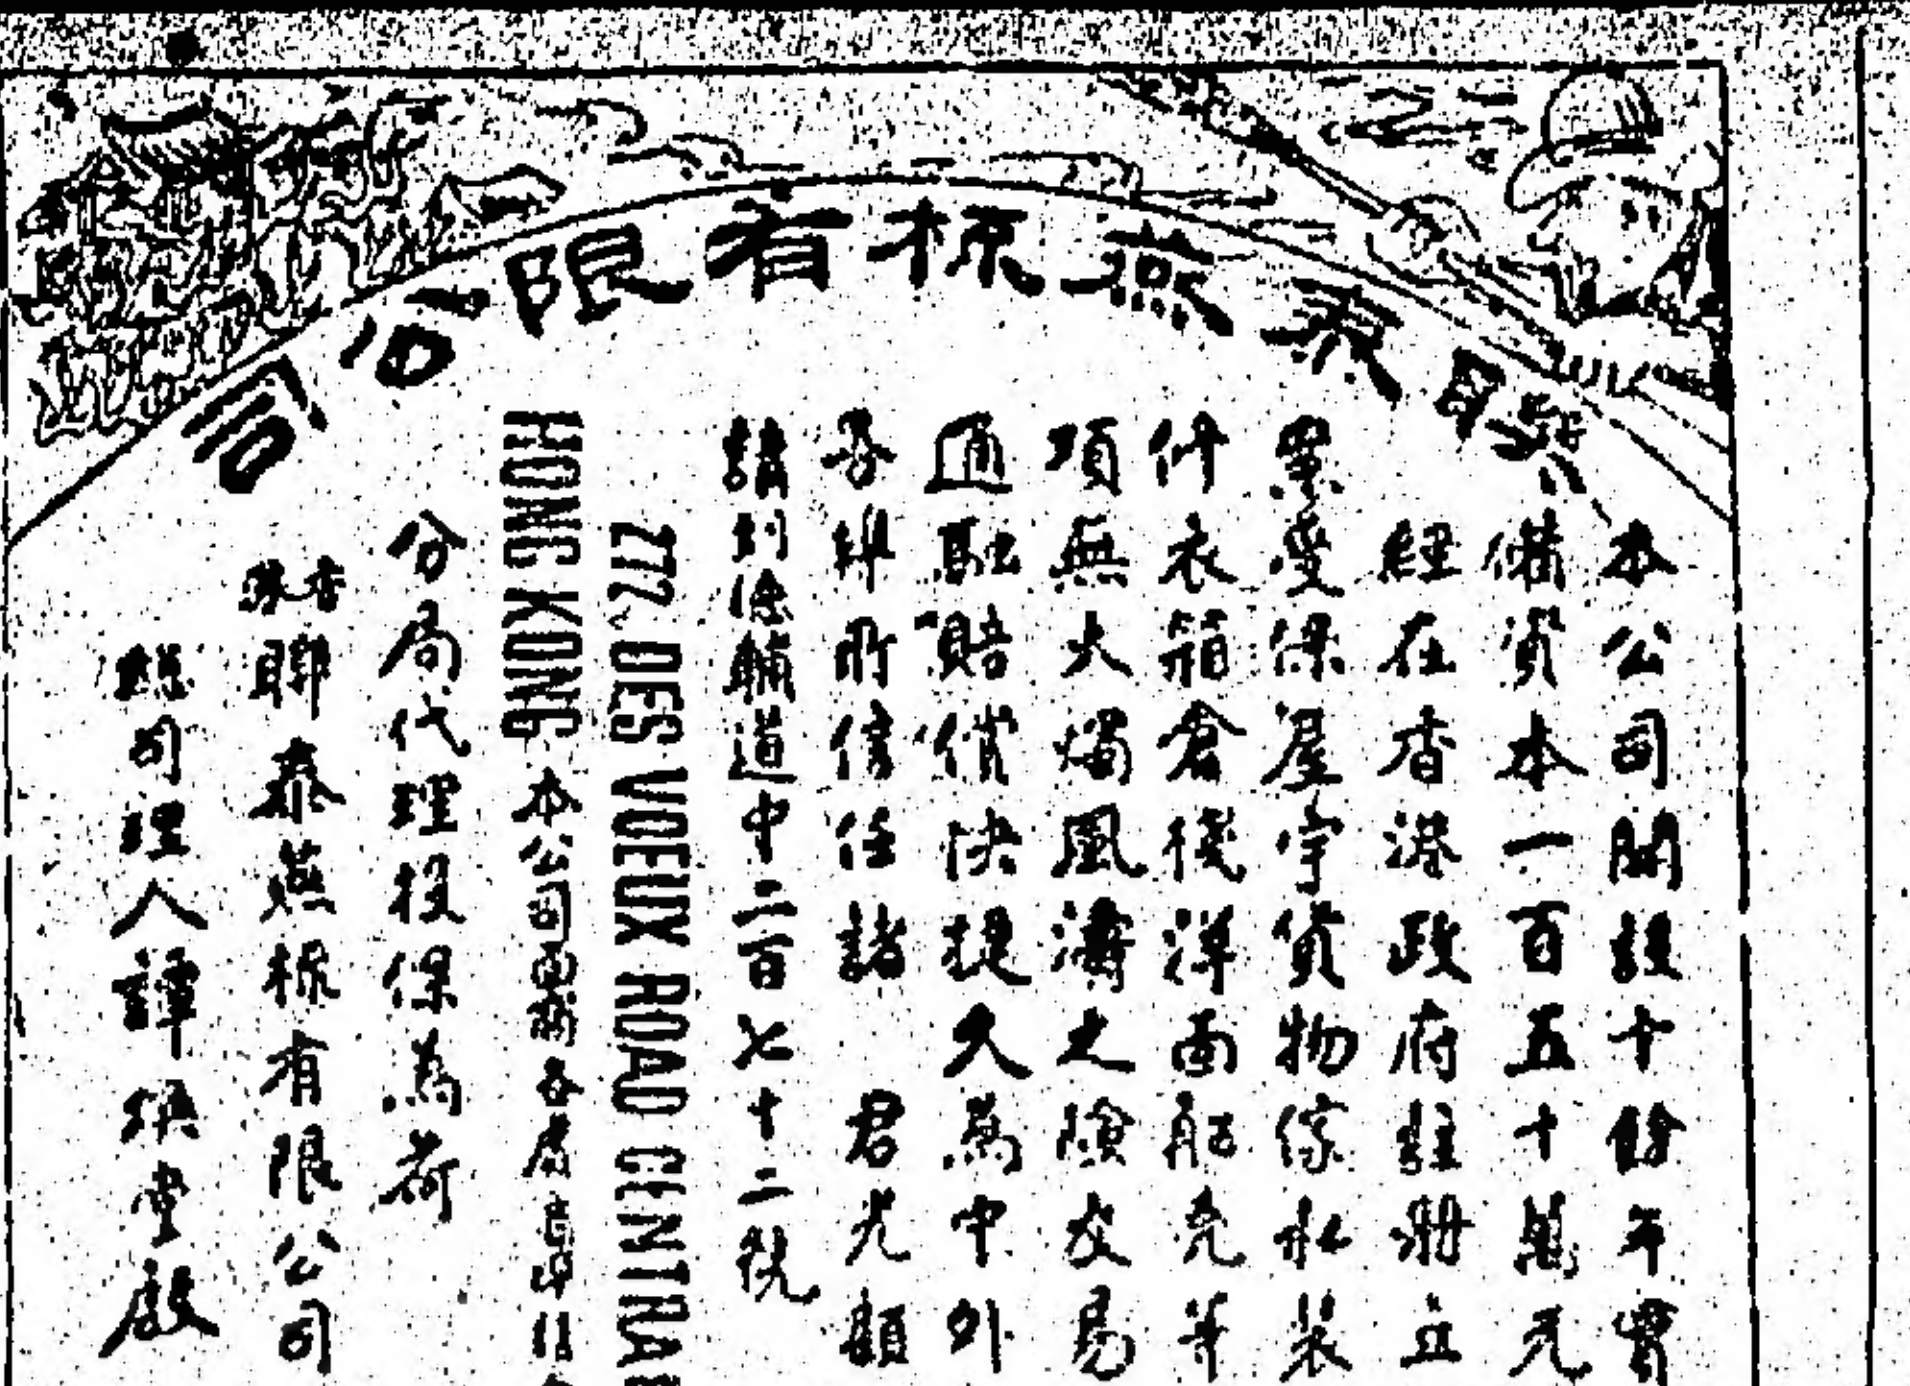 聯泰燕梳有限公司
本公司開設十餘年實
備資本一百五十萬元
經在香港政府註冊立
案受保屋宇貨物傢私裝
什衣箱倉棧洋面船壳等
項無大燭風濤之險交易
通融賠償快捷久為中外
各埠所信任諸 君光顧
請到德輔道中二百七十二號
272 DES VOEUX ROAD CENTRA
HONG KONG 本公司各處
分局代理投保為荷
香港聯泰燕梳有限公司
總司理人譚煥堂啟